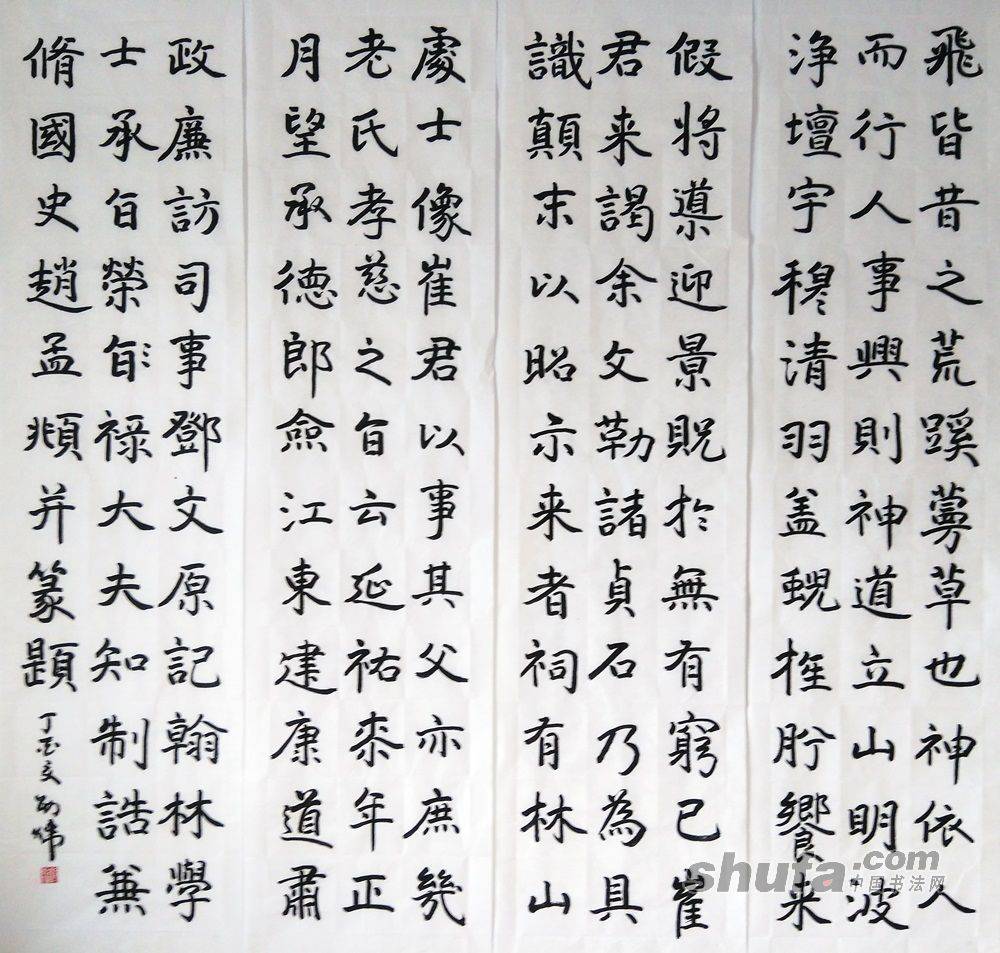 飛皆昔之荒蹊蔓草也神依人
而行人事興則神道立山明波
浄壇宇穆清羽盖蜺旌肹饗来
假将導迎景貺於無有窮已崔
君来謁余文勒諸貞石乃為具
識顛末以昭示来者祠有林山
處士像崔君以事其父亦庶幾
老氏孝慈之旨云延祐桼年正
月望承德郎僉江東建康道肅
政廉訪司事鄧文原記翰林學
士承旨榮旨禄大夫知制誥兼
脩國史趙孟頫并篆題
丁酉
shufa.com
中国书法网